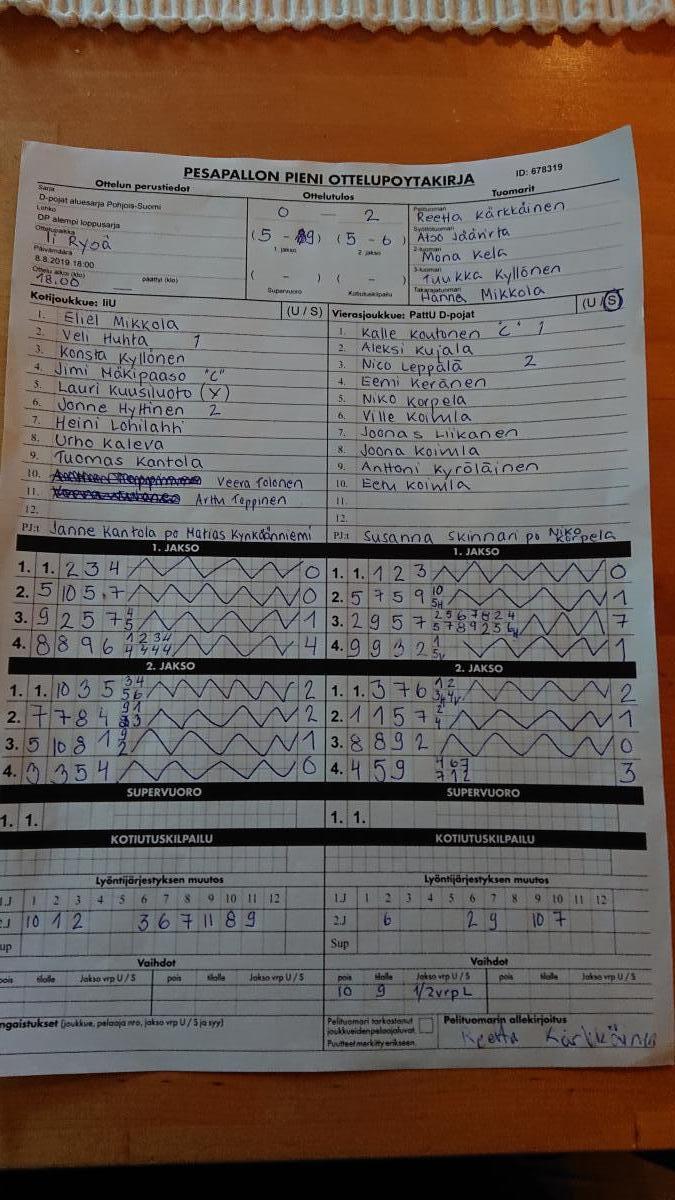 PESAPALLON PIENI OTTELUPOYTAKIRJA ID: 678319
Ottelun perustiedot Ottelutulos Tuomarit
Sarja
D-pojat aluesarja Pohjois-Suomi
Lohko
DP alempi loppusarja
Ottelupaikka
Ii Rysä
Päivämäärä
8.8.2019 18:00
Ottelu alkoi (klo) päättyi (klo)
18.00
0 — 2
(5 - 9) (5 - 6)
1. jakso 2. jakso
( - ) ( - )
Supervuoro Kotiutuskilpailu
Pelituomari
Reetta Kärkkäinen
Syöttötuomari
2-tuomari
Mona Kela
3-tuomari
Tuukka Kyllönen
Takarajatuomari
Hanna Mikkola
Kotijoukkue: IiU (U / S)
1. Eliel Mikkola
2. Veli Huhta 1
3. Konsta Kyllönen
4. Jimi Mäkipaaso "C"
5. Lauri Kuusiluoto (X)
6. Jonne Hyttinen 2
7. Heini Lohilahti
8. Urho Kaleva
9. Tuomas Kantola
10. Veera Tolonen
11. Arttu Teppinen
12.
PJ:t Janne Kantola po Matias Kynkäänniemi
Vierasjoukkue: PattU D-pojat (U / S)
1. Kalle Koutonen "C" 1
2. Aleksi Kujala
3. Nico Leppälä 2
4. Eemi Keränen
5. Niko Korpela
6. Ville Koimla
7. Joonas Liikanen
8. Joona Koimla
9. Anttoni Kyröläinen
10. Eetu Koimla
11.
12.
PJ:t Susanna Skinnari po Niko Korpela
1. JAKSO 1. JAKSO
1. 1. 2 3 4 0 1. 1. 1 2 3 0
2. 5 10 5 7 0 2. 5 7 5 9 1
3. 9 2 5 7 1 3. 2 9 5 7 7
4. 8 8 9 6 4 4. 9 9 3 2 1
2. JAKSO 2. JAKSO
1. 1. 10 3 5 2 1. 1. 3 7 6 2
2. 7 7 8 4 2 2. 1 1 5 7 1
3. 5 10 8 1 1 3. 8 8 9 2 0
4. 3 3 5 4 0 4. 4 5 9 3
SUPERVUORO SUPERVUORO
1. 1. 1. 1.
KOTIUTUSKILPAILU KOTIUTUSKILPAILU
Lyöntijärjestyksen muutos Lyöntijärjestyksen muutos
1.J 1 2 3 4 5 6 7 8 9 10 11 12 1.J 1 2 3 4 5 6 7 8 9 10 11 12
2.J 10 1 2 3 6 7 11 8 9 2.J 6 2 9 10 7
Sup Sup
Vaihdot Vaihdot
pois tilalle Jakso vrp U / S pois tilalle Jakso vrp U / S pois tilalle Jakso vrp U / S pois tilalle Jakso vrp U / S
10 9 1/2vrp L
ngaistukset (joukkue, pelaaja nro, jakso vrp U / S ja syy)
Pelituomari tarkastanut
joukkueiden pelaajaluvat.
Puutteet merkitty erikseen.
Pelituomarin allekirjoitus
Reetta Kärkkäinen